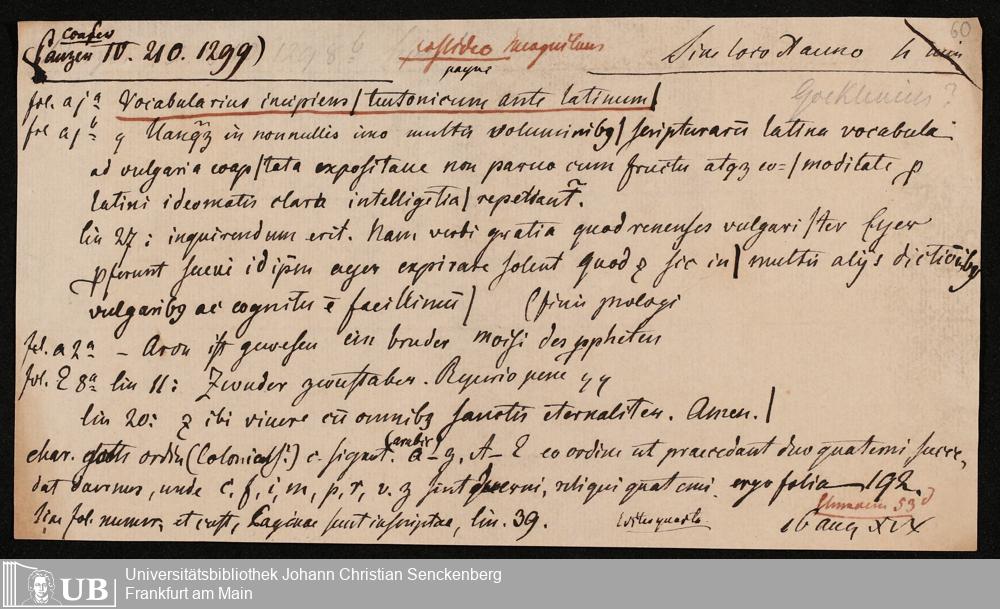 confer
(Panzer IV. 210. 1299)
Sine loco & anno 4 min
60
fol. a jᵃ Vocabularius incipiens / teutonicum ante latinum /
Gocklenius?
fol a jᵇ in nonnullis imo multis voluminibꝫ / scripturarū latina vocabula
ad vulgaria coap / tata expositaue non paruo cum fructu atqꝫ co= / moditate ꝓ
latini ideomatis clara intelligētia / repetiant.
lin 27: inquirendum erit. Nam verbi gratia quod renenses vulgari / ter Eyer
ꝓferunt sueui id ip̄m ayer expirare solent Quod & sic in / multis alijs dictiōibꝫ
vulgaribꝫ ac cognitis ē facillimū / (finis prologi
fol. a 2ᵃ – Aron ist gewesen ein bruder moisi des ꝓpheten
fol. Z 8ᵃ lin 11:
lin 20: & ibi viuere cū omnibꝫ sanctis eternaliter. Amen. /
char. goth ordin (Coloniens?.) c. signat. (arabic) a – z, A – Z eo ordine ut praecedant duo quaterni succe,
dat duernus, unde c, f, i, m, p, r, v. z sint duerni, reliqui quaterni. ergo folia 192.
sine fol. numer, et cust, Paginae sunt inscriptae, lin. 39.
53 d
16 aug XIX
UB Universitätsbibliothek Johann Christian Senckenberg
Frankfurt am Main